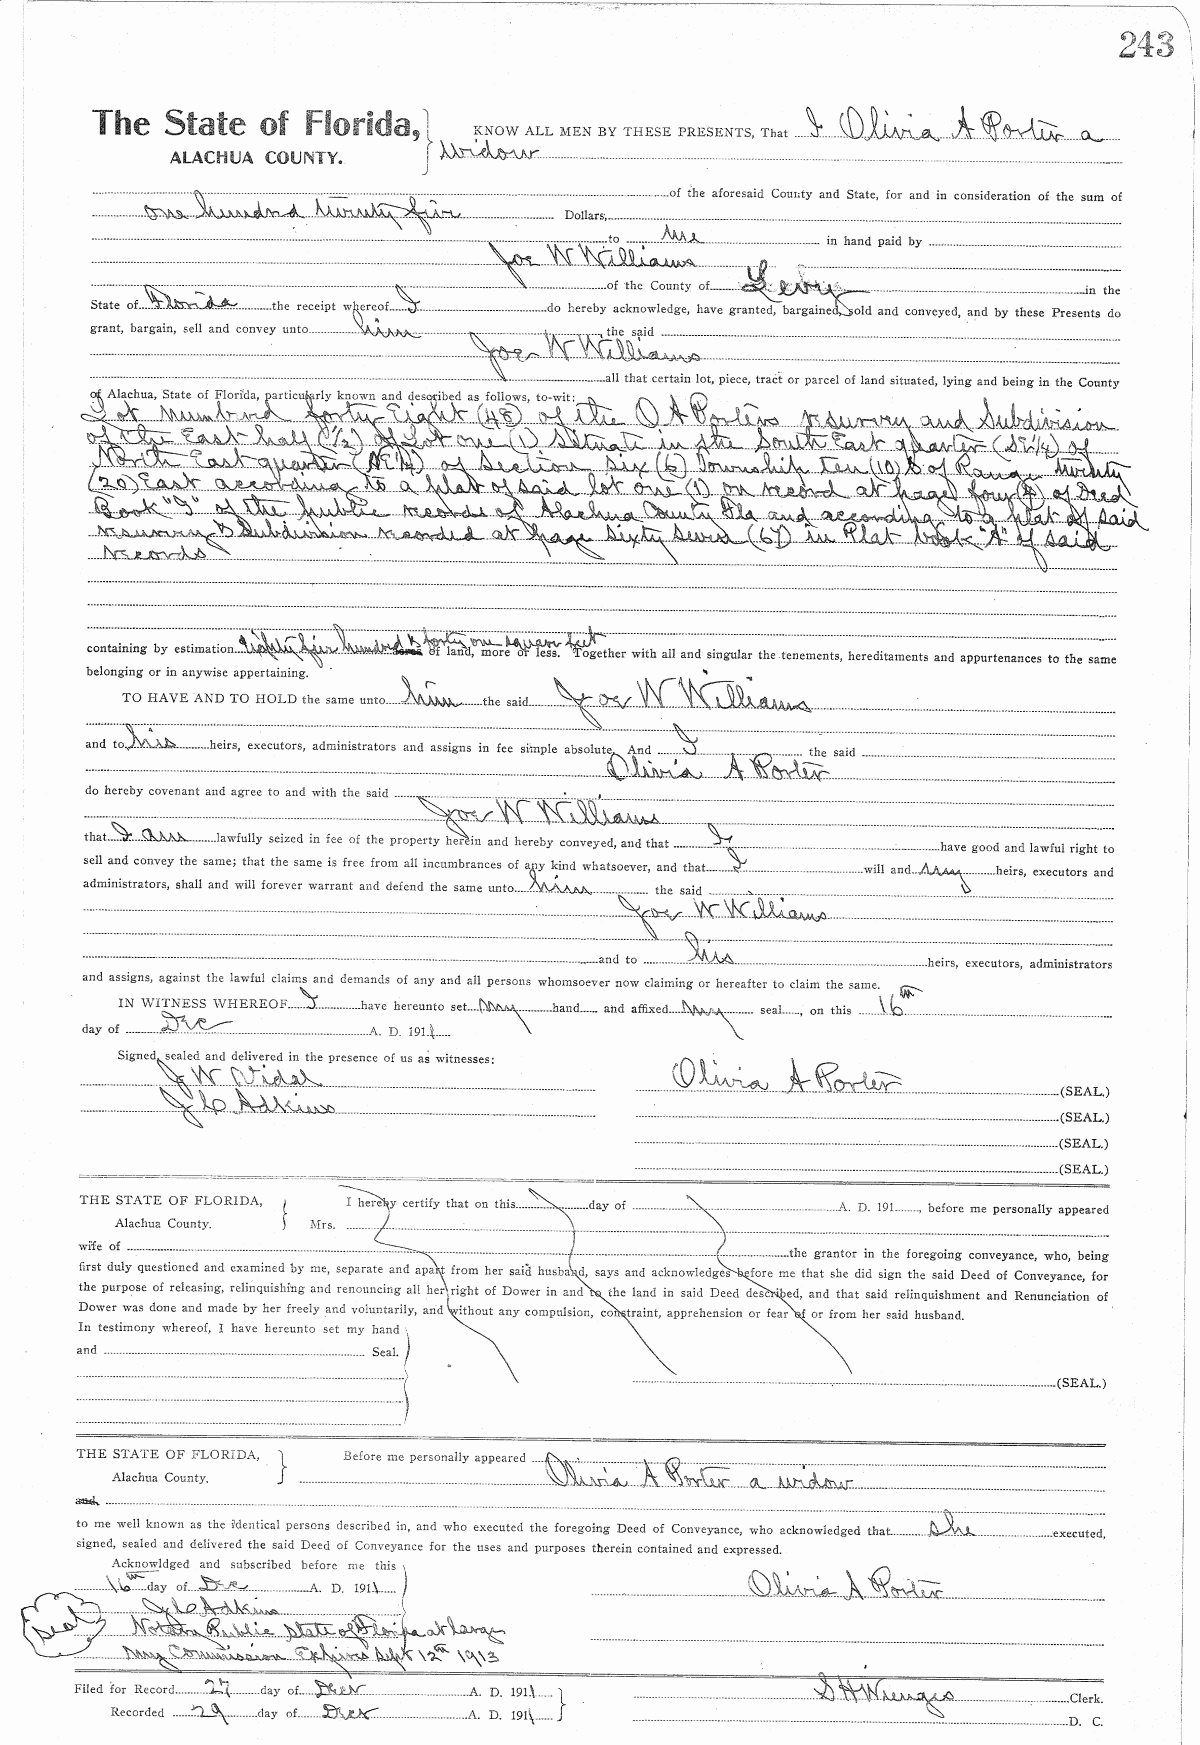 243
The State of Florida, KNOW ALL MEN BY THESE PRESENTS, That I Olivia A Porter a
ALACHUA COUNTY. widow
of the aforesaid County and State, for and in consideration of the sum of
one hundred twenty five Dollars,
to me in hand paid by
Joe W Williams
of the County of Levy in the
State of Florida the receipt whereof I do hereby acknowledge, have granted, bargained, sold and conveyed, and by these Presents do
grant, bargain, sell and convey unto him the said
Joe W Williams
all that certain lot, piece, tract or parcel of land situated, lying and being in the County
of Alachua, State of Florida, particularly known and described as follows, to-wit:
Lot numbered forty Eight (48) of the O A Porters resurvey and Subdivision
of the East half (1/2) of Lot one (1) Situate in the South East quarter (SE1/4) of
North East quarter (NE1/4) of Section Six (6) Township ten (10) S of Range twenty
(20) East according to a plat of said lot one (1) on record at page four (4) of Deed
Book "I" of the public records of Alachua County Fla and according to a plat of said
resurvey & Subdivision recorded at page Sixty Seven (67) in Plat book "A" of said
records
containing by estimation eighty five hundred & forty one square feet of land, more or less. Together with all and singular the tenements, hereditaments and appurtenances to the same
belonging or in anywise appertaining.
TO HAVE AND TO HOLD the same unto him the said Joe W Williams
and to his heirs, executors, administrators and assigns in fee simple absolute. And I the said
Olivia A Porter
do hereby covenant and agree to and with the said
Joe W Williams
that I am lawfully seized in fee of the property herein and hereby conveyed, and that I have good and lawful right to
sell and convey the same; that the same is free from all incumbrances of any kind whatsoever, and that I will and my heirs, executors and
administrators, shall and will forever warrant and defend the same unto him the said
Joe W Williams
and to his heirs, executors, administrators
and assigns, against the lawful claims and demands of any and all persons whomsoever now claiming or hereafter to claim the same.
IN WITNESS WHEREOF I have hereunto set my hand and affixed my seal, on this 16th
day of Dec A. D. 1911
Signed, sealed and delivered in the presence of us as witnesses:
J W Vidal Olivia A Porter (SEAL.)
J C Adkins (SEAL.)
(SEAL.)
(SEAL.)
THE STATE OF FLORIDA, I hereby certify that on this day of A. D. 191, before me personally appeared
Alachua County. Mrs.
wife of the grantor in the foregoing conveyance, who, being
first duly questioned and examined by me, separate and apart from her said husband, says and acknowledges before me that she did sign the said Deed of Conveyance, for
the purpose of releasing, relinquishing and renouncing all her right of Dower in and to the land in said Deed described, and that said relinquishment and Renunciation of
Dower was done and made by her freely and voluntarily, and without any compulsion, constraint, apprehension or fear of or from her said husband.
In testimony whereof, I have hereunto set my hand
and Seal.
(SEAL.)
THE STATE OF FLORIDA, Before me personally appeared
Alachua County. Olivia A Porter a widow
and
to me well known as the identical persons described in, and who executed the foregoing Deed of Conveyance, who acknowledged that she executed,
signed, sealed and delivered the said Deed of Conveyance for the uses and purposes therein contained and expressed.
Acknowldged and subscribed before me this
16th day of Dec A. D. 1911 Olivia A Porter
J C Adkins
Seal Notary Public State of Florida at Large
My Commission Expires Sept 12th 1913
Filed for Record 27 day of Dec A. D. 1911 S H Wienges Clerk.
Recorded 29 day of Dec A. D. 1911 D. C.